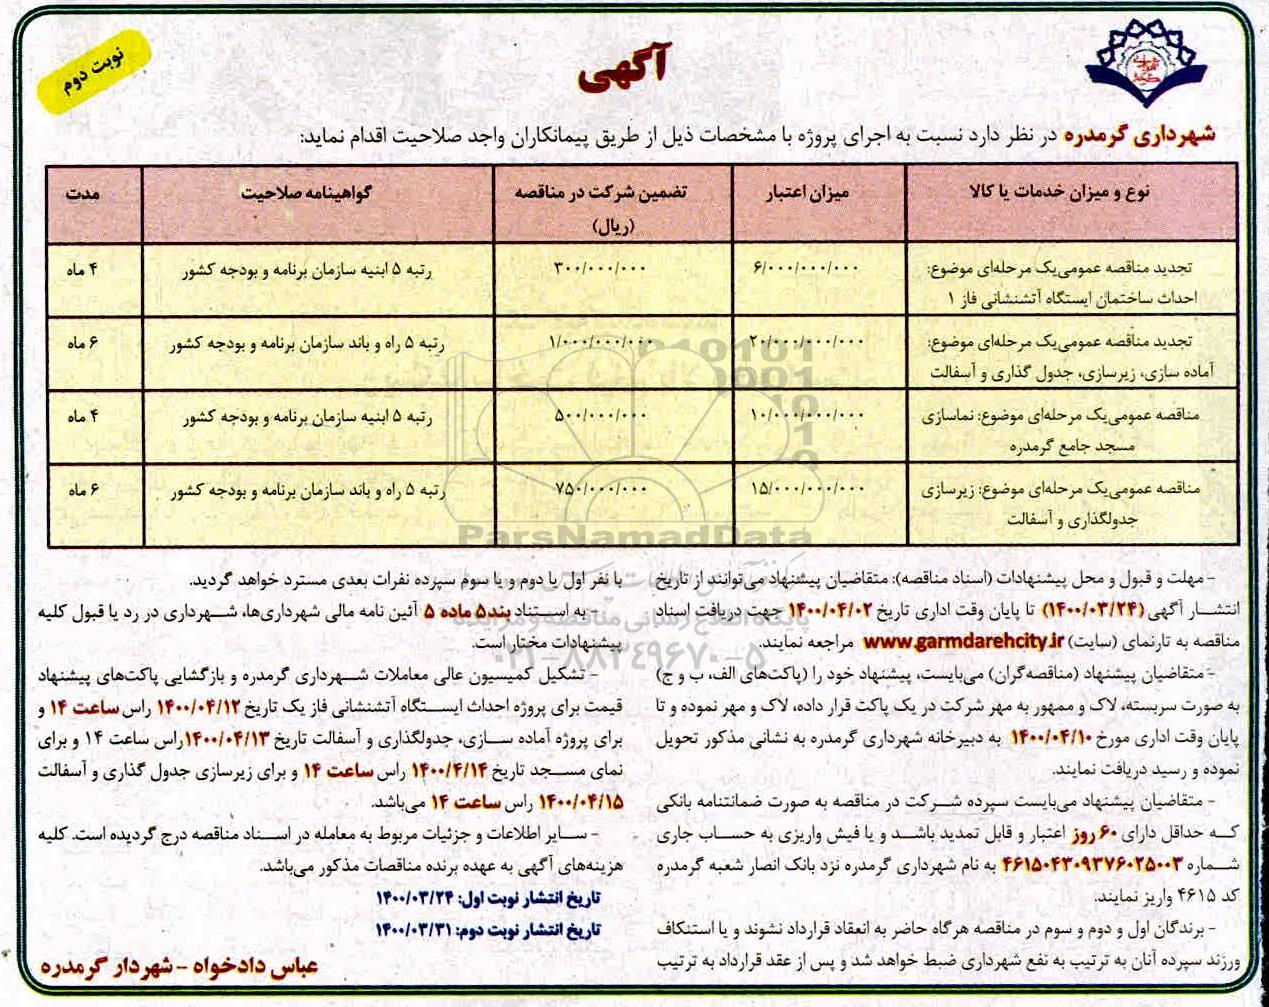 آگهی
نوبت دوم
شهرداری گرمدره در نظر دارد نسبت به اجرای پروژه با مشخصات ذیل از طریق پیمانکاران واجد صلاحیت اقدام نماید:
نوع و میزان خدمات یا کالا میزان اعتبار تضمین شرکت در مناقصه گواهینامه صلاحیت مدت
(ریال)
تجدید مناقصه عمومی‌یک مرحله‌ای موضوع: ۶/۰۰۰/۰۰۰/۰۰۰ ۳۰۰/۰۰۰/۰۰۰ رتبه ۵ ابنیه سازمان برنامه و بودجه کشور ۴ ماه
احداث ساختمان ایستگاه آتشنشانی فاز ۱
تجدید مناقصه عمومی‌یک مرحله‌ای موضوع: ۲۰/۰۰۰/۰۰۰/۰۰۰ ۱/۰۰۰/۰۰۰/۰۰۰ رتبه ۵ راه و باند سازمان برنامه و بودجه کشور ۶ ماه
آماده سازی، زیرسازی، جدول گذاری و آسفالت
مناقصه عمومی‌یک مرحله‌ای موضوع: نماسازی ۱۰/۰۰۰/۰۰۰/۰۰۰ ۵۰۰/۰۰۰/۰۰۰ رتبه ۵ ابنیه سازمان برنامه و بودجه کشور ۴ ماه
مسجد جامع گرمدره
مناقصه عمومی‌یک مرحله‌ای موضوع: زیرسازی ۱۵/۰۰۰/۰۰۰/۰۰۰ ۷۵۰/۰۰۰/۰۰۰ رتبه ۵ راه و باند سازمان برنامه و بودجه کشور ۶ ماه
جدولگذاری و آسفالت
ParsNamadData
پایگاه اطلاع رسانی مناقصه و مزایده
۰۲۱-۸۸۳۴۹۶۷۰-۵
- مهلت و قبول و محل پیشنهادات (اسناد مناقصه): متقاضیان پیشنهاد می‌توانند از تاریخ
انتشار آگهی (۱۴۰۰/۰۳/۲۴) تا پایان وقت اداری تاریخ ۱۴۰۰/۰۴/۰۲ جهت دریافت اسناد
مناقصه به تارنمای (سایت) www.garmdarehcity.ir مراجعه نمایند.
- متقاضیان پیشنهاد (مناقصه‌گران) می‌بایست، پیشنهاد خود را (پاکت‌های الف، ب و ج)
به صورت سربسته، لاک و ممهور به مهر شرکت در یک پاکت قرار داده، لاک و مهر نموده و تا
پایان وقت اداری مورخ ۱۴۰۰/۰۴/۱۰ به دبیرخانه شهرداری گرمدره به نشانی مذکور تحویل
نموده و رسید دریافت نمایند.
- متقاضیان پیشنهاد می‌بایست سپرده شرکت در مناقصه به صورت ضمانتنامه بانکی
که حداقل دارای ۶۰ روز اعتبار و قابل تمدید باشد و یا فیش واریزی به حساب جاری
شماره ۴۶۱۵۰۴۳۰۹۳۷۶۰۲۵۰۰۳ به نام شهرداری گرمدره نزد بانک انصار شعبه گرمدره
کد ۴۶۱۵ واریز نمایند.
- برندگان اول و دوم و سوم در مناقصه هرگاه حاضر به انعقاد قرارداد نشوند و یا استنکاف
ورزند سپرده آنان به ترتیب به نفع شهرداری ضبط خواهد شد و پس از عقد قرارداد به ترتیب
با نفر اول یا دوم و یا سوم سپرده نفرات بعدی مسترد خواهد گردید.
- به استناد بند۵ ماده ۵ آئین نامه مالی شهرداری‌ها، شهرداری در رد یا قبول کلیه
پیشنهادات مختار است.
- تشکیل کمیسیون عالی معاملات شهرداری گرمدره و بازگشایی پاکت‌های پیشنهاد
قیمت برای پروژه احداث ایستگاه آتشنشانی فاز یک تاریخ ۱۴۰۰/۰۴/۱۲ راس ساعت ۱۴ و
برای پروژه آماده سازی، جدولگذاری و آسفالت تاریخ ۱۴۰۰/۰۴/۱۳راس ساعت ۱۴ و برای
نمای مسجد تاریخ ۱۴۰۰/۴/۱۴ راس ساعت ۱۴ و برای زیرسازی جدول گذاری و آسفالت
۱۴۰۰/۰۴/۱۵ راس ساعت ۱۴ می‌باشد.
- سایر اطلاعات و جزئیات مربوط به معامله در اسناد مناقصه درج گردیده است. کلیه
هزینه‌های آگهی به عهده برنده مناقصات مذکور می‌باشد.
تاریخ انتشار نوبت اول: ۱۴۰۰/۰۳/۲۴
تاریخ انتشار نوبت دوم: ۱۴۰۰/۰۳/۳۱
عباس دادخواه - شهردار گرمدره